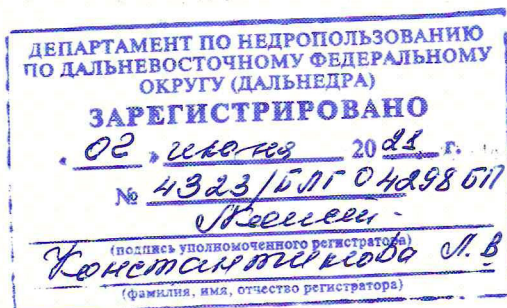 ДЕПАРТАМЕНТ ПО НЕДРОПОЛЬЗОВАНИЮ
ПО ДАЛЬНЕВОСТОЧНОМУ ФЕДЕРАЛЬНОМУ
ОКРУГУ (ДАЛЬНЕДРА)
ЗАРЕГИСТРИРОВАНО
« 02 » 2021 г.
№ 4323/БЛГ 04298 БП
(подпись уполномоченного регистратора)
Константинова Л.В
(фамилия, имя, отчество регистратора)